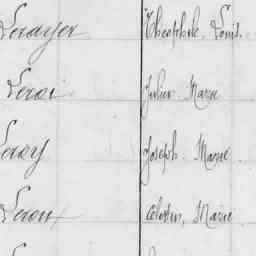 Lerayer Théophile Louis.
Leroi Julien Marie
Leroy Joseph Marie
Leroux Célestin, Marie